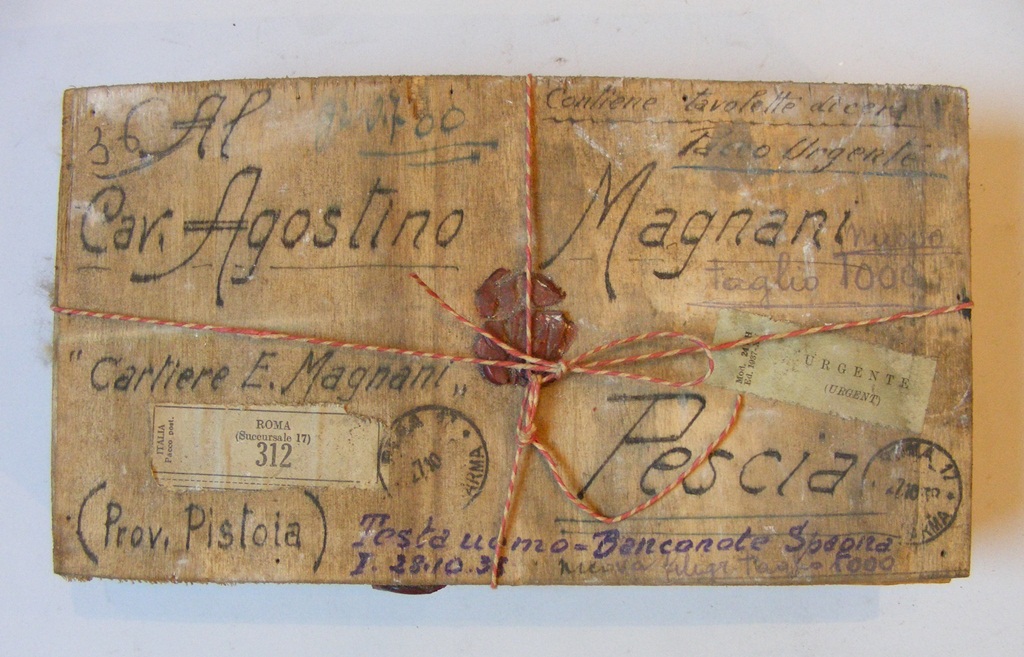 36 Al
Contiene tavolette di cera
Pacco Urgente
Cav. Agostino Magnani
nuovo
Taglio 1000
"Cartiere E. Magnani"
Mod. 24-
Ed. 1937
URGENTE
(URGENT)
ITALIA
Pacco post.
ROMA
(Succursale 17)
312
ROMA 17
27.10
ARMA
Pescia
ROMA 17
27.10.38
ARMA
(Prov. Pistoia)
Testa uomo - Banconote Spagna
I. 28.10.38 nuova filigr Taglio 1000